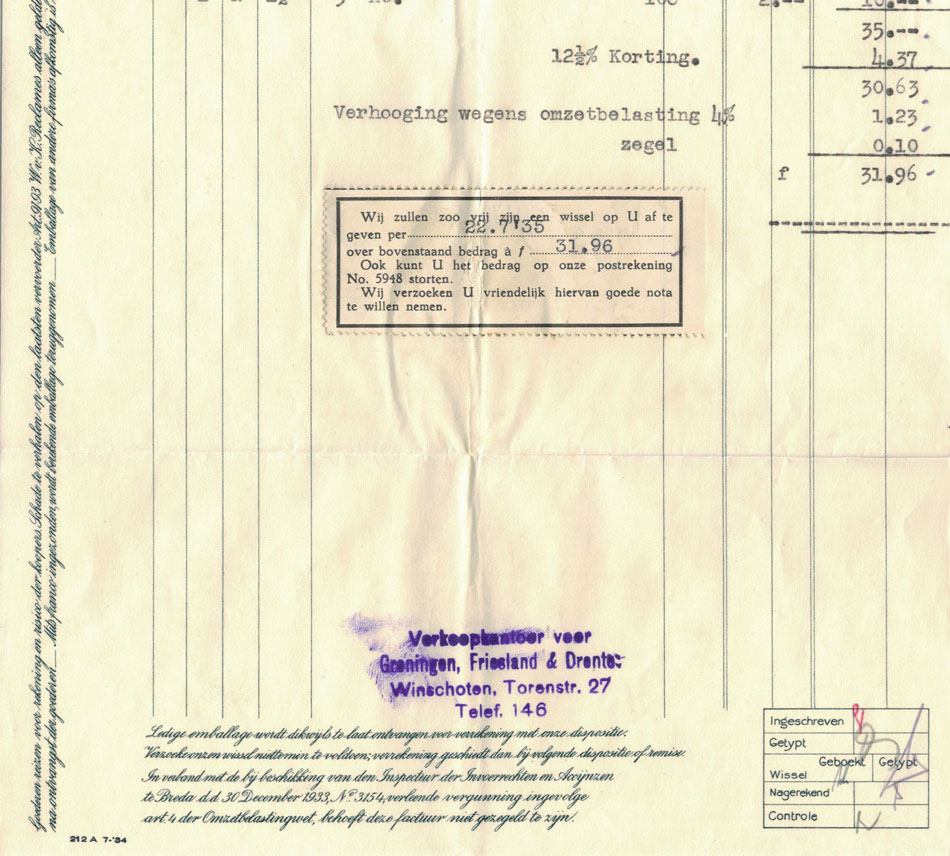 35.--
12½% Korting. 4.37
30.63
Verhooging wegens omzetbelasting 4% 1.23
zegel 0.10
f 31.96
Wij zullen zoo vrij zijn een wissel op U af te
geven per 22.7'35
over bovenstaand bedrag à f 31.96
Ook kunt U het bedrag op onze postrekening
No. 5948 storten.
Wij verzoeken U vriendelijk hiervan goede nota
te willen nemen.
Verkoopkantoor voor
Groningen, Friesland & Drente:
Winschoten, Torenstr. 27
Telef. 146
Ledige emballage wordt dikwijls te laat ontvangen voor verrekening met onze dispositie.
Verzoeke onzen wissel niettemin te voldoen; verrekening geschiedt dan bij volgende dispositie of remise.
In verband met de bij beschikking van den Inspecteur der Invoerrechten en Accijnzen
te Breda d.d. 30 December 1933, No. 3154, verleende vergunning ingevolge
art. 4 der Omzetbelastingwet, behoeft deze factuur niet gezegeld te zijn.
Goederen reizen voor rekening en risico der koopers. Schade te verhalen op den laatsten vervoerder Art. 91-93 W.v.K. Reclames alleen geldig
na ontvangst der goederen. Mits franco ingezonden, wordt berekende emballage teruggenomen. Emballage van andere firma's afkomstig is
Ingeschreven
Getypt
Geboekt Getypt
Wissel
Nagerekend
Controle
212 A 7-'34